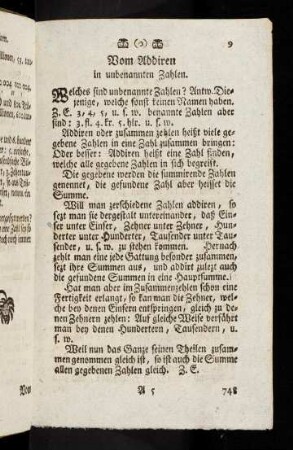 (o) 9
Vom Addiren
in unbenannten Zahlen.
Welches sind unbenannte Zahlen? Antw. Die-
jenige, welche sonst keinen Namen haben.
Z. E. 3, 4, 5, u. s. w. benannte Zahlen aber
sind: 3. fl. 4. kr. 5. hlr. u. s. w.
Addiren oder zusammen zehlen heist viele ge-
gebene Zahlen in eine Zahl zusammen bringen:
Oder besser: Addiren heist eine Zahl finden,
welche alle gegebene Zahlen in sich begreift.
Die gegebene werden die summirende Zahlen
genennet, die gefundene Zahl aber heisset die
Summe.
Will man verschiedene Zahlen addiren, so
sezt man sie dergestalt untereinander, daß Ein-
der unter Einser, Zehner unter Zehner, Hun-
derter unter Hunderter, Tausender unter Tau-
sender, u. s. w. zu stehen kommen. Hernach
zehlt man eine jede Gattung besonder zusammen,
sezt ihre Summen aus, und addirt zulezt auch
die gefundene Summen in eine Hauptsumme.
Hat man aber im Zusammenzehlen schon eine
Fertigkeit erlangt, so kan man die Zehner, wel-
che bey denen Einsern entspringen, gleich zu de-
nen Zehnern zehlen: Auf gleiche Weise verfährt
man bey denen Hundertern, Tausendern, u.
s. w.
Weil nun das Ganze seinen Theilen zusam-
men genommen gleich ist, so ist auch die Summe
allen gegebenen Zahlen gleich. Z. E.
A 5 748